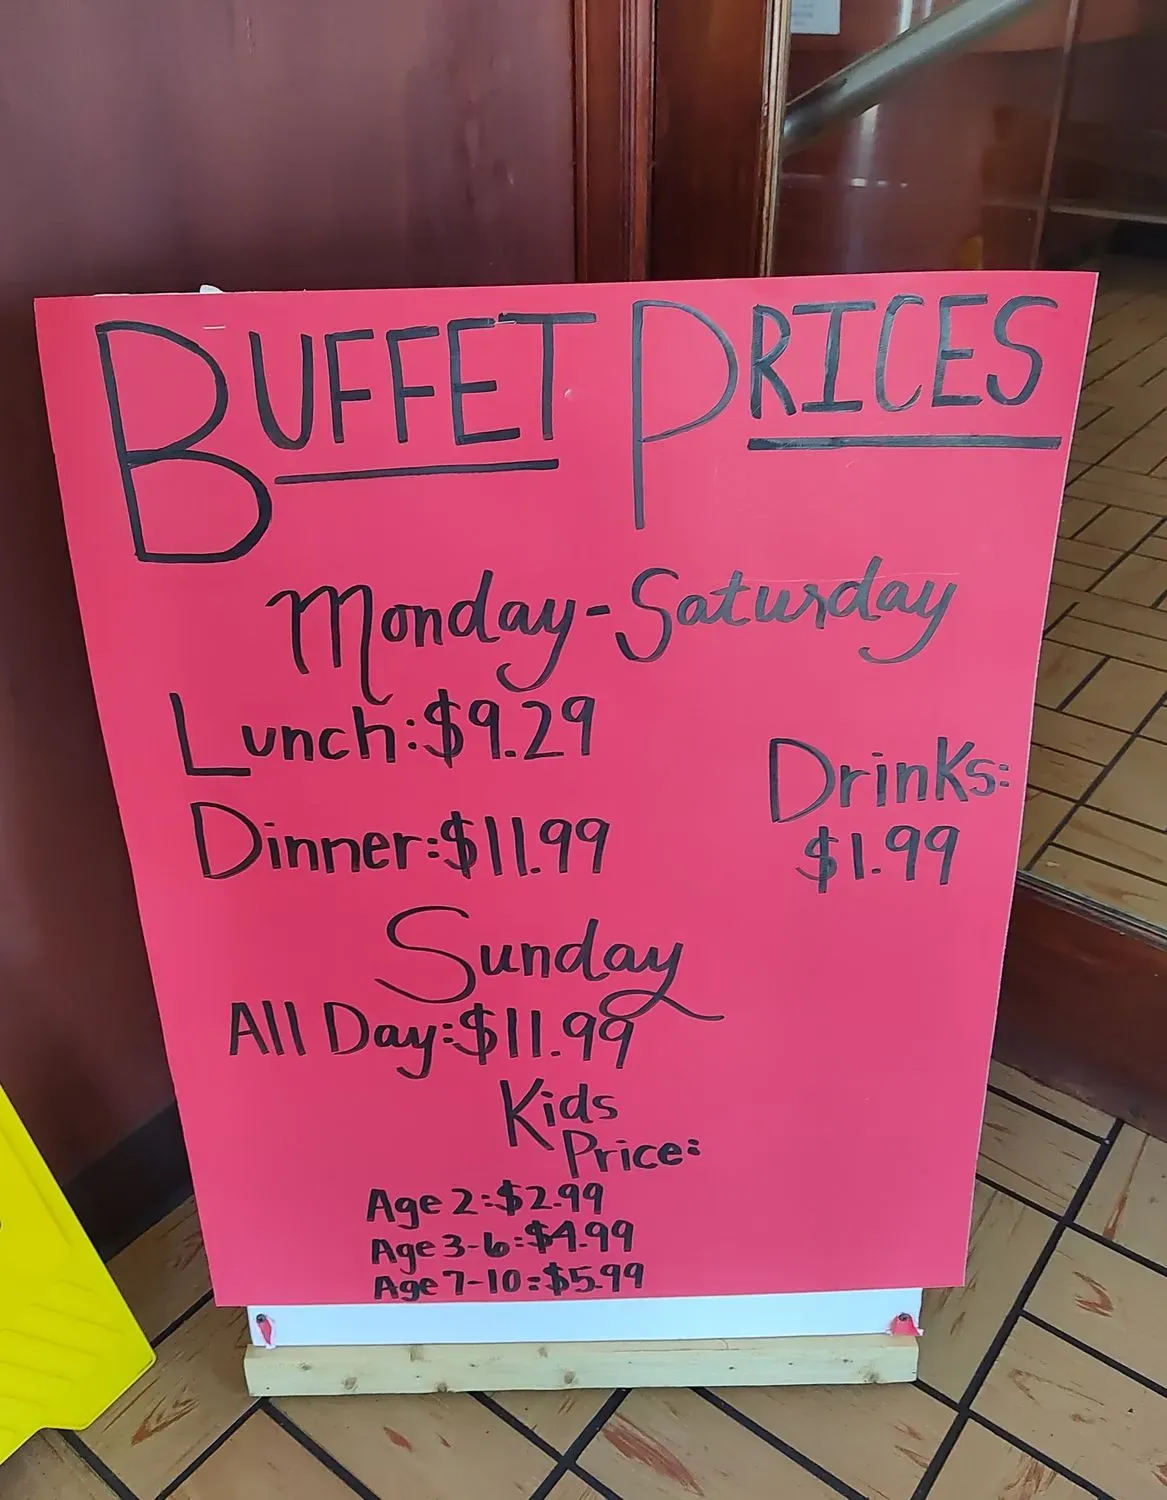 BUFFET PRICES
Monday-Saturday
Lunch:$9.29
Dinner:$11.99
Drinks:
$1.99
Sunday
All Day:$11.99
Kids
Price:
Age 2:$2.99
Age 3-6:$4.99
Age 7-10:$5.99